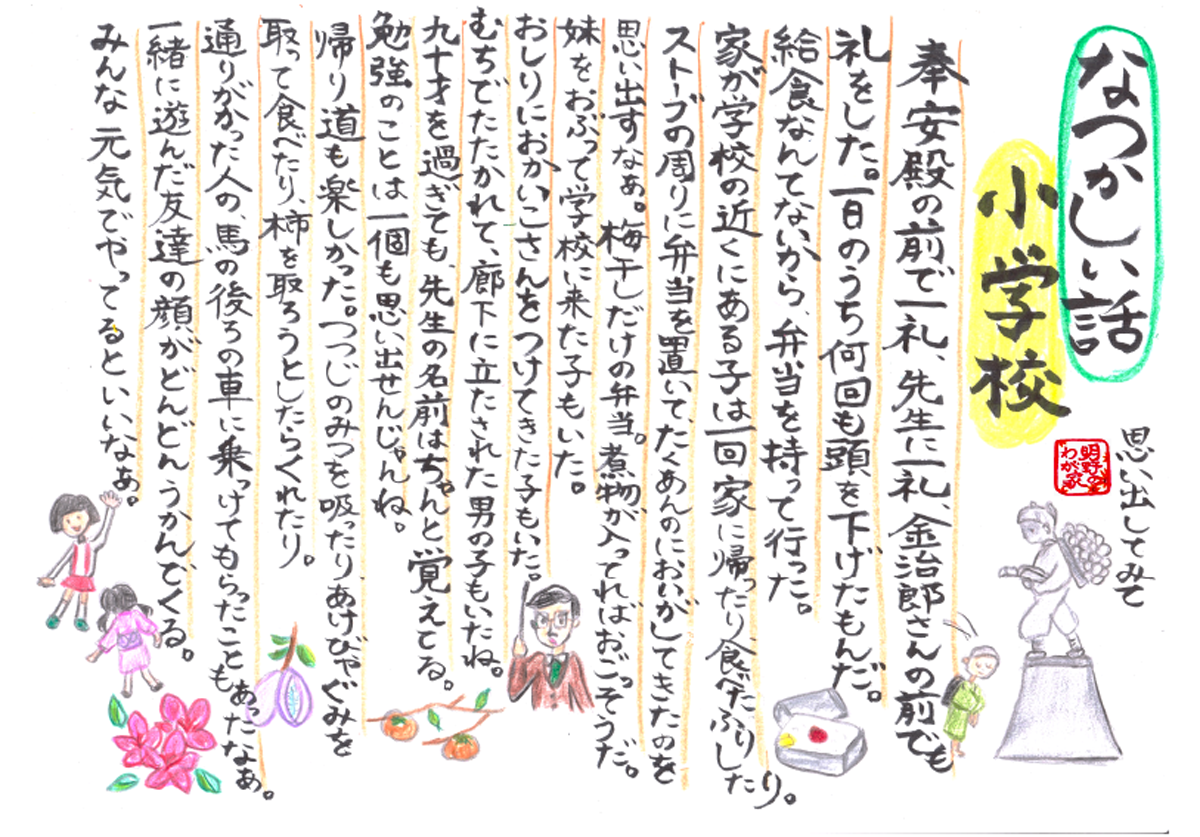 なつかしい話
小学校
思い出してみて
明野の
わが家
奉安殿の前で一礼、先生に一礼、金治郎さんの前でも
礼をした。一日のうち何回も頭を下げたもんだ。
給食なんてないから、弁当を持って行った。
家が学校の近くにある子は一回家に帰ったり、食べたふりしたり。
ストーブの周りに弁当を置いて、たくあんのにおいがしてきたのを
思い出すなぁ。梅干しだけの弁当。煮物が入ってればおごっそうだ。
妹をおぶって学校に来た子もいた。
おしりにおかいこさんをつけてきた子もいた。
むちでたたかれて、廊下に立たされた男の子もいたね。
九十才を過ぎても、先生の名前はちゃんと覚えてる。
勉強のことは一個も思い出せんじゃんね。
帰り道も楽しかった。つつじのみつを吸ったり、あけびやぐみを
取って食べたり、柿を取ろうとしたらくれたり。
通りがかった人の、馬の後ろの車に乗っけてもらったこともあったなぁ。
一緒に遊んだ友達の顔がどんどんうかんでくる。
みんな元気でやってるといいなぁ。